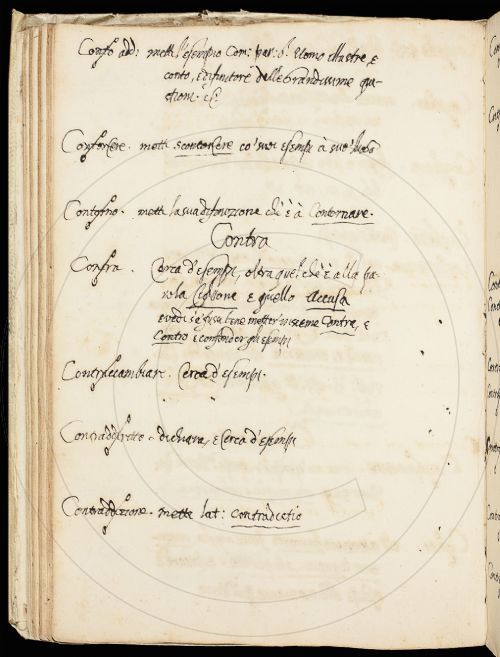 Conto add: metti l'esempio Com: par: d'Uomo illustre, e
conto, e difinitore delle grandissime que-
stioni. ec:
Contorcere. metti scontorcere co' suoi esempi à suo luogo
Contorno. metti la sua difinizione che è à Contornare.
Contra
Contra. Cerca d'esempi, oltra quel che è alla pa-
rola Ciglione e quello Accusa
e vedi se fusse bene metter insieme Contra, e
Contro e confonder gli esempi
Contraccambiare. Cerca d'esempi.
Contraddetto. dichiara, e Cerca d'esempi
Contraddizione. metti lat: contradictio